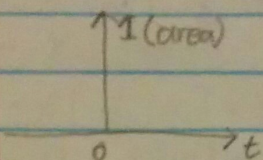 1 (area)
0 t